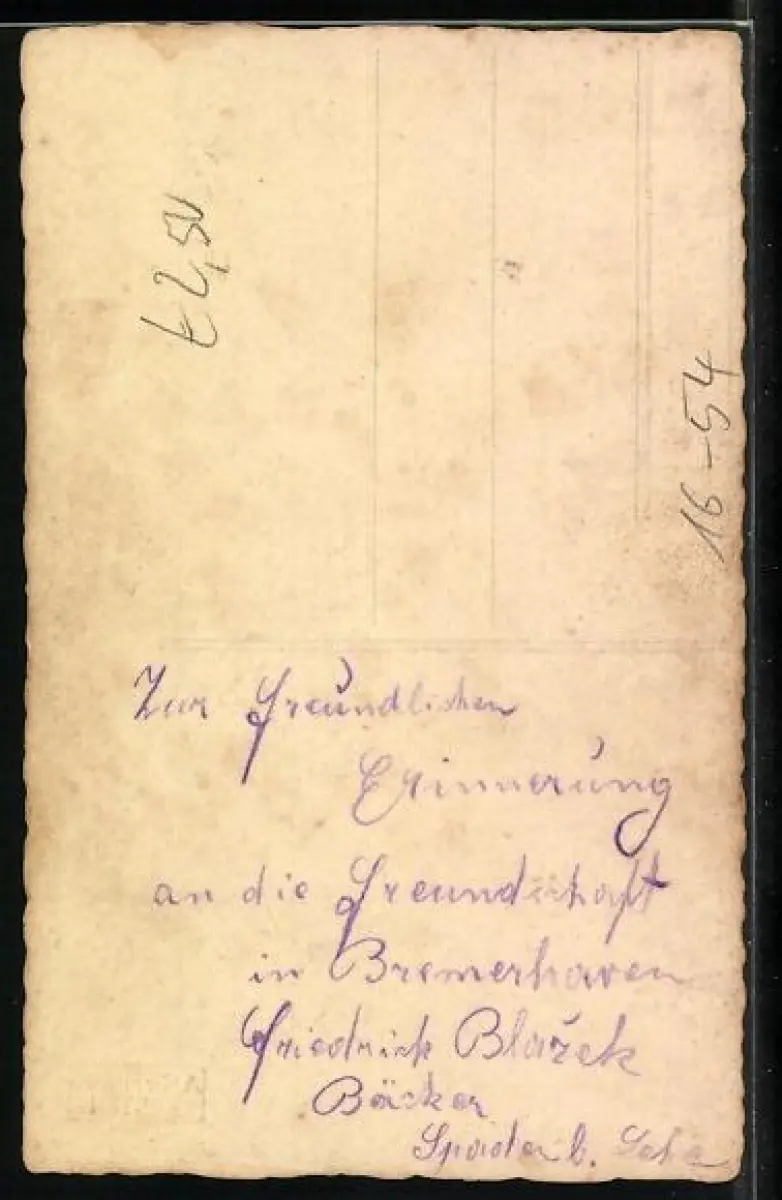 2,50
16-54
Zur freundlichen
Erinnerung
an die Freundschaft
in Bremerhaven
Friedrich Blažek
Bäcker
Spaden b. Lehe